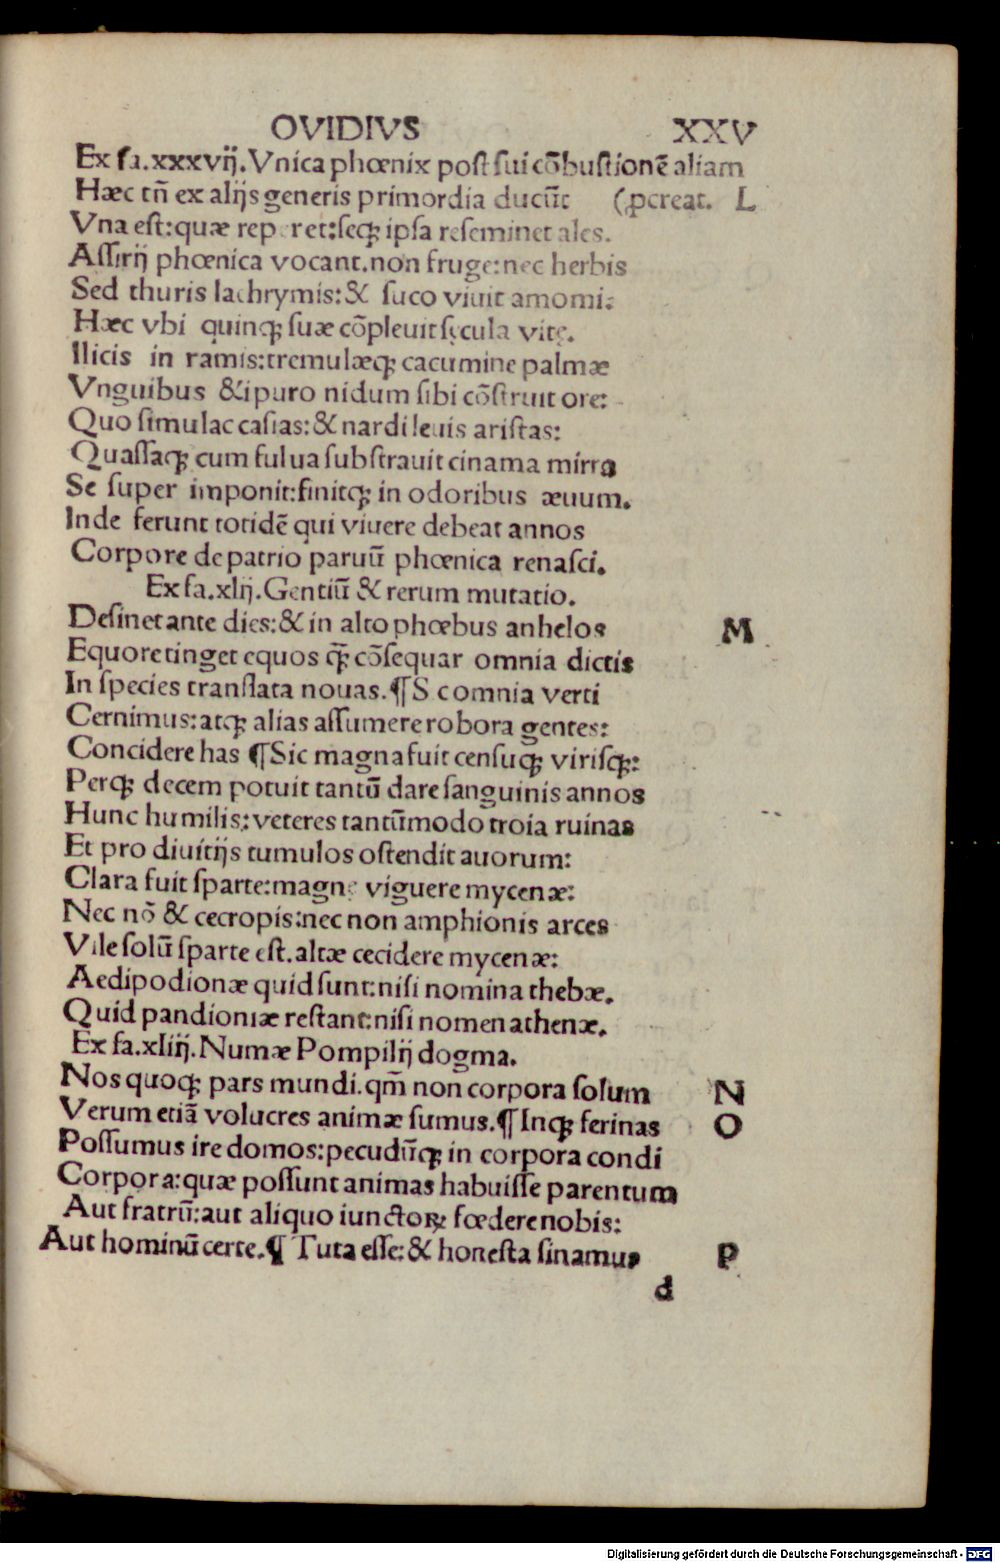 OVIDIVS XXV
Ex fa.xxxvij.Vnica phœnix post sui cōbustionē aliam
Hæc tn̄ ex alijs generis primordia ducūt (ꝓcreat. L
Vna est:quæ reperet:seqꝫ ipsa reseminet ales.
Assirij phœnica vocant.non fruge:nec herbis
Sed thuris lachrymis:& suco viuit amomi:
Hæc vbi quinqꝫ suæ cōpleuit sęcula vitę.
Ilicis in ramis:tremulæqꝫ cacumine palmæ
Vnguibus & ipuro nidum sibi cōstruit ore:
Quo simulac casias:& nardi leuis aristas:
Quassaqꝫ cum fulua substrauit cinama mirra
Se super imponit:finitqꝫ in odoribus æuum.
Inde ferunt totidē qui viuere debeat annos
Corpore de patrio paruū phœnica renasci.
Ex fa.xlij.Gentiū & rerum mutatio.
Desinet ante dies:& in alto phœbus anhelos M
Equore tinget equos qꝫ̄ cōsequar omnia dictis
In species translata nouas.¶S c omnia verti
Cernimus:atqꝫ alias assumere robora gentes:
Concidere has ¶Sic magna fuit censuqꝫ virisqꝫ:
Perqꝫ decem potuit tantū dare sanguinis annos
Hunc humilis:veteres tantūmodo troia ruinas
Et pro diuitijs tumulos ostendit auorum:
Clara fuit sparte:magnę viguere mycenæ:
Nec nō & cecropis:nec non amphionis arces
Vile solū sparte est.altæ cecidere mycenæ:
Aedipodionæ quid sunt:nisi nomina thebæ.
Quid pandioniæ restant:nisi nomen athenæ.
Ex fa.xliij.Numæ Pompilij dogma.
Nos quoqꝫ pars mundi.qm̄ non corpora solum N
Verum etiā volucres animæ sumus.¶Inqꝫ ferinas O
Possumus ire domos:pecudūqꝫ in corpora condi
Corpora:quæ possunt animas habuisse parentum
Aut fratrū:aut aliquo iunctoꝝ fœdere nobis:
Aut hominū certe.¶ Tuta esse:& honesta sinamus P
d
Digitalisierung gefördert durch die Deutsche Forschungsgemeinschaft - DFG